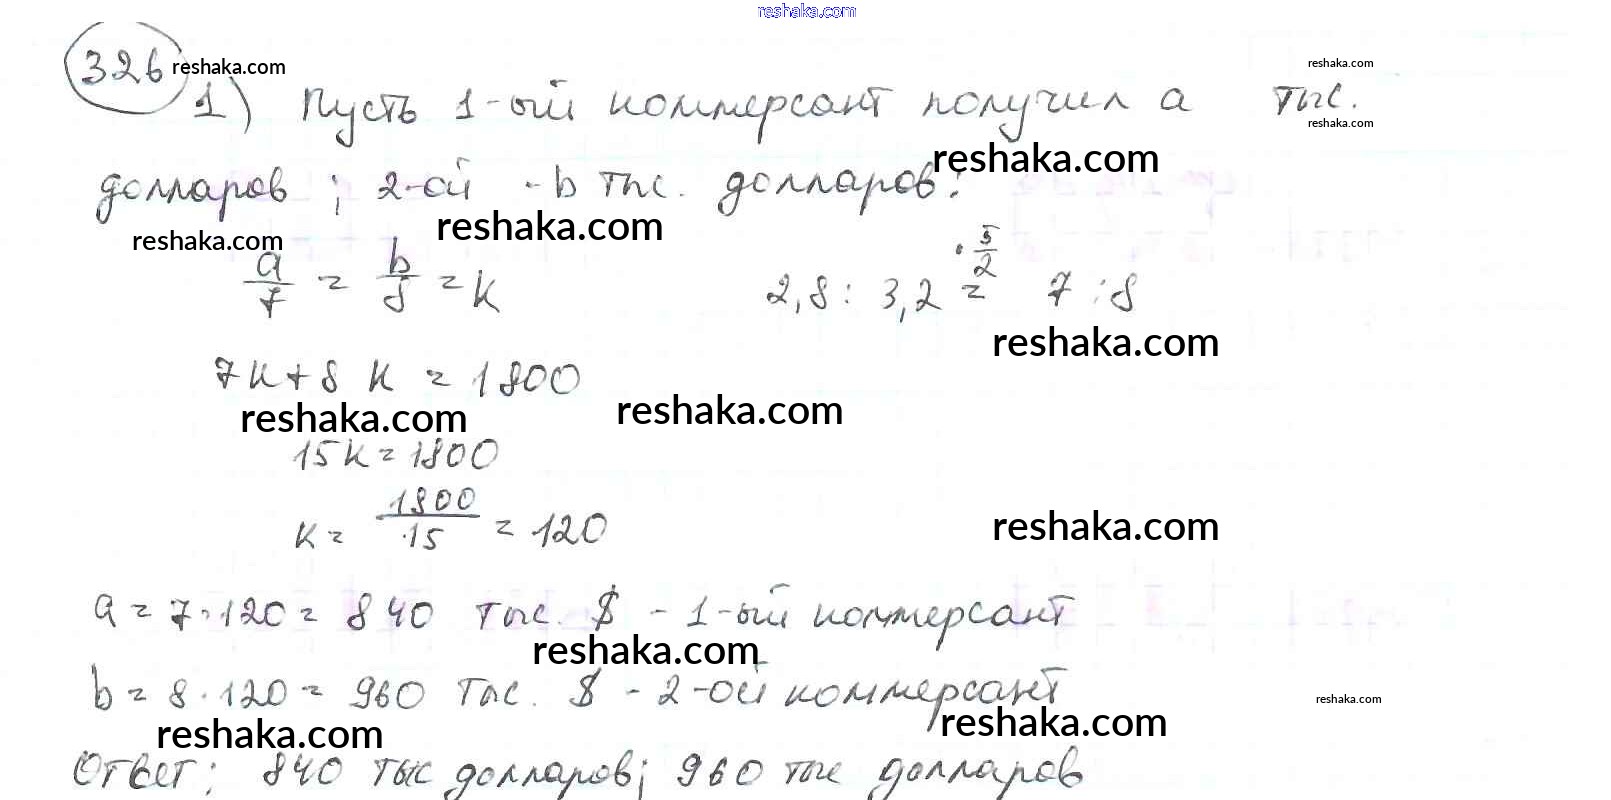 reshaka.com
326 reshaka.com reshaka.com
1) Пусть 1-ый коммерсант получил a тыс.
reshaka.com
reshaka.com
долларов ; 2-ой - b тыс. долларов:
reshaka.com
reshaka.com
a/7 = b/8 = k 2,8 : 3,2 = 7 : 8
· 5/2
reshaka.com
7k+8k = 1800
reshaka.com reshaka.com
15k=1800
k= 1800/15 = 120
reshaka.com
a = 7·120 = 840 тыс. $ - 1-ый коммерсант
reshaka.com
b = 8·120 = 960 тыс. $ - 2-ой коммерсант
reshaka.com
reshaka.com reshaka.com
Ответ: 840 тыс долларов; 960 тыс долларов